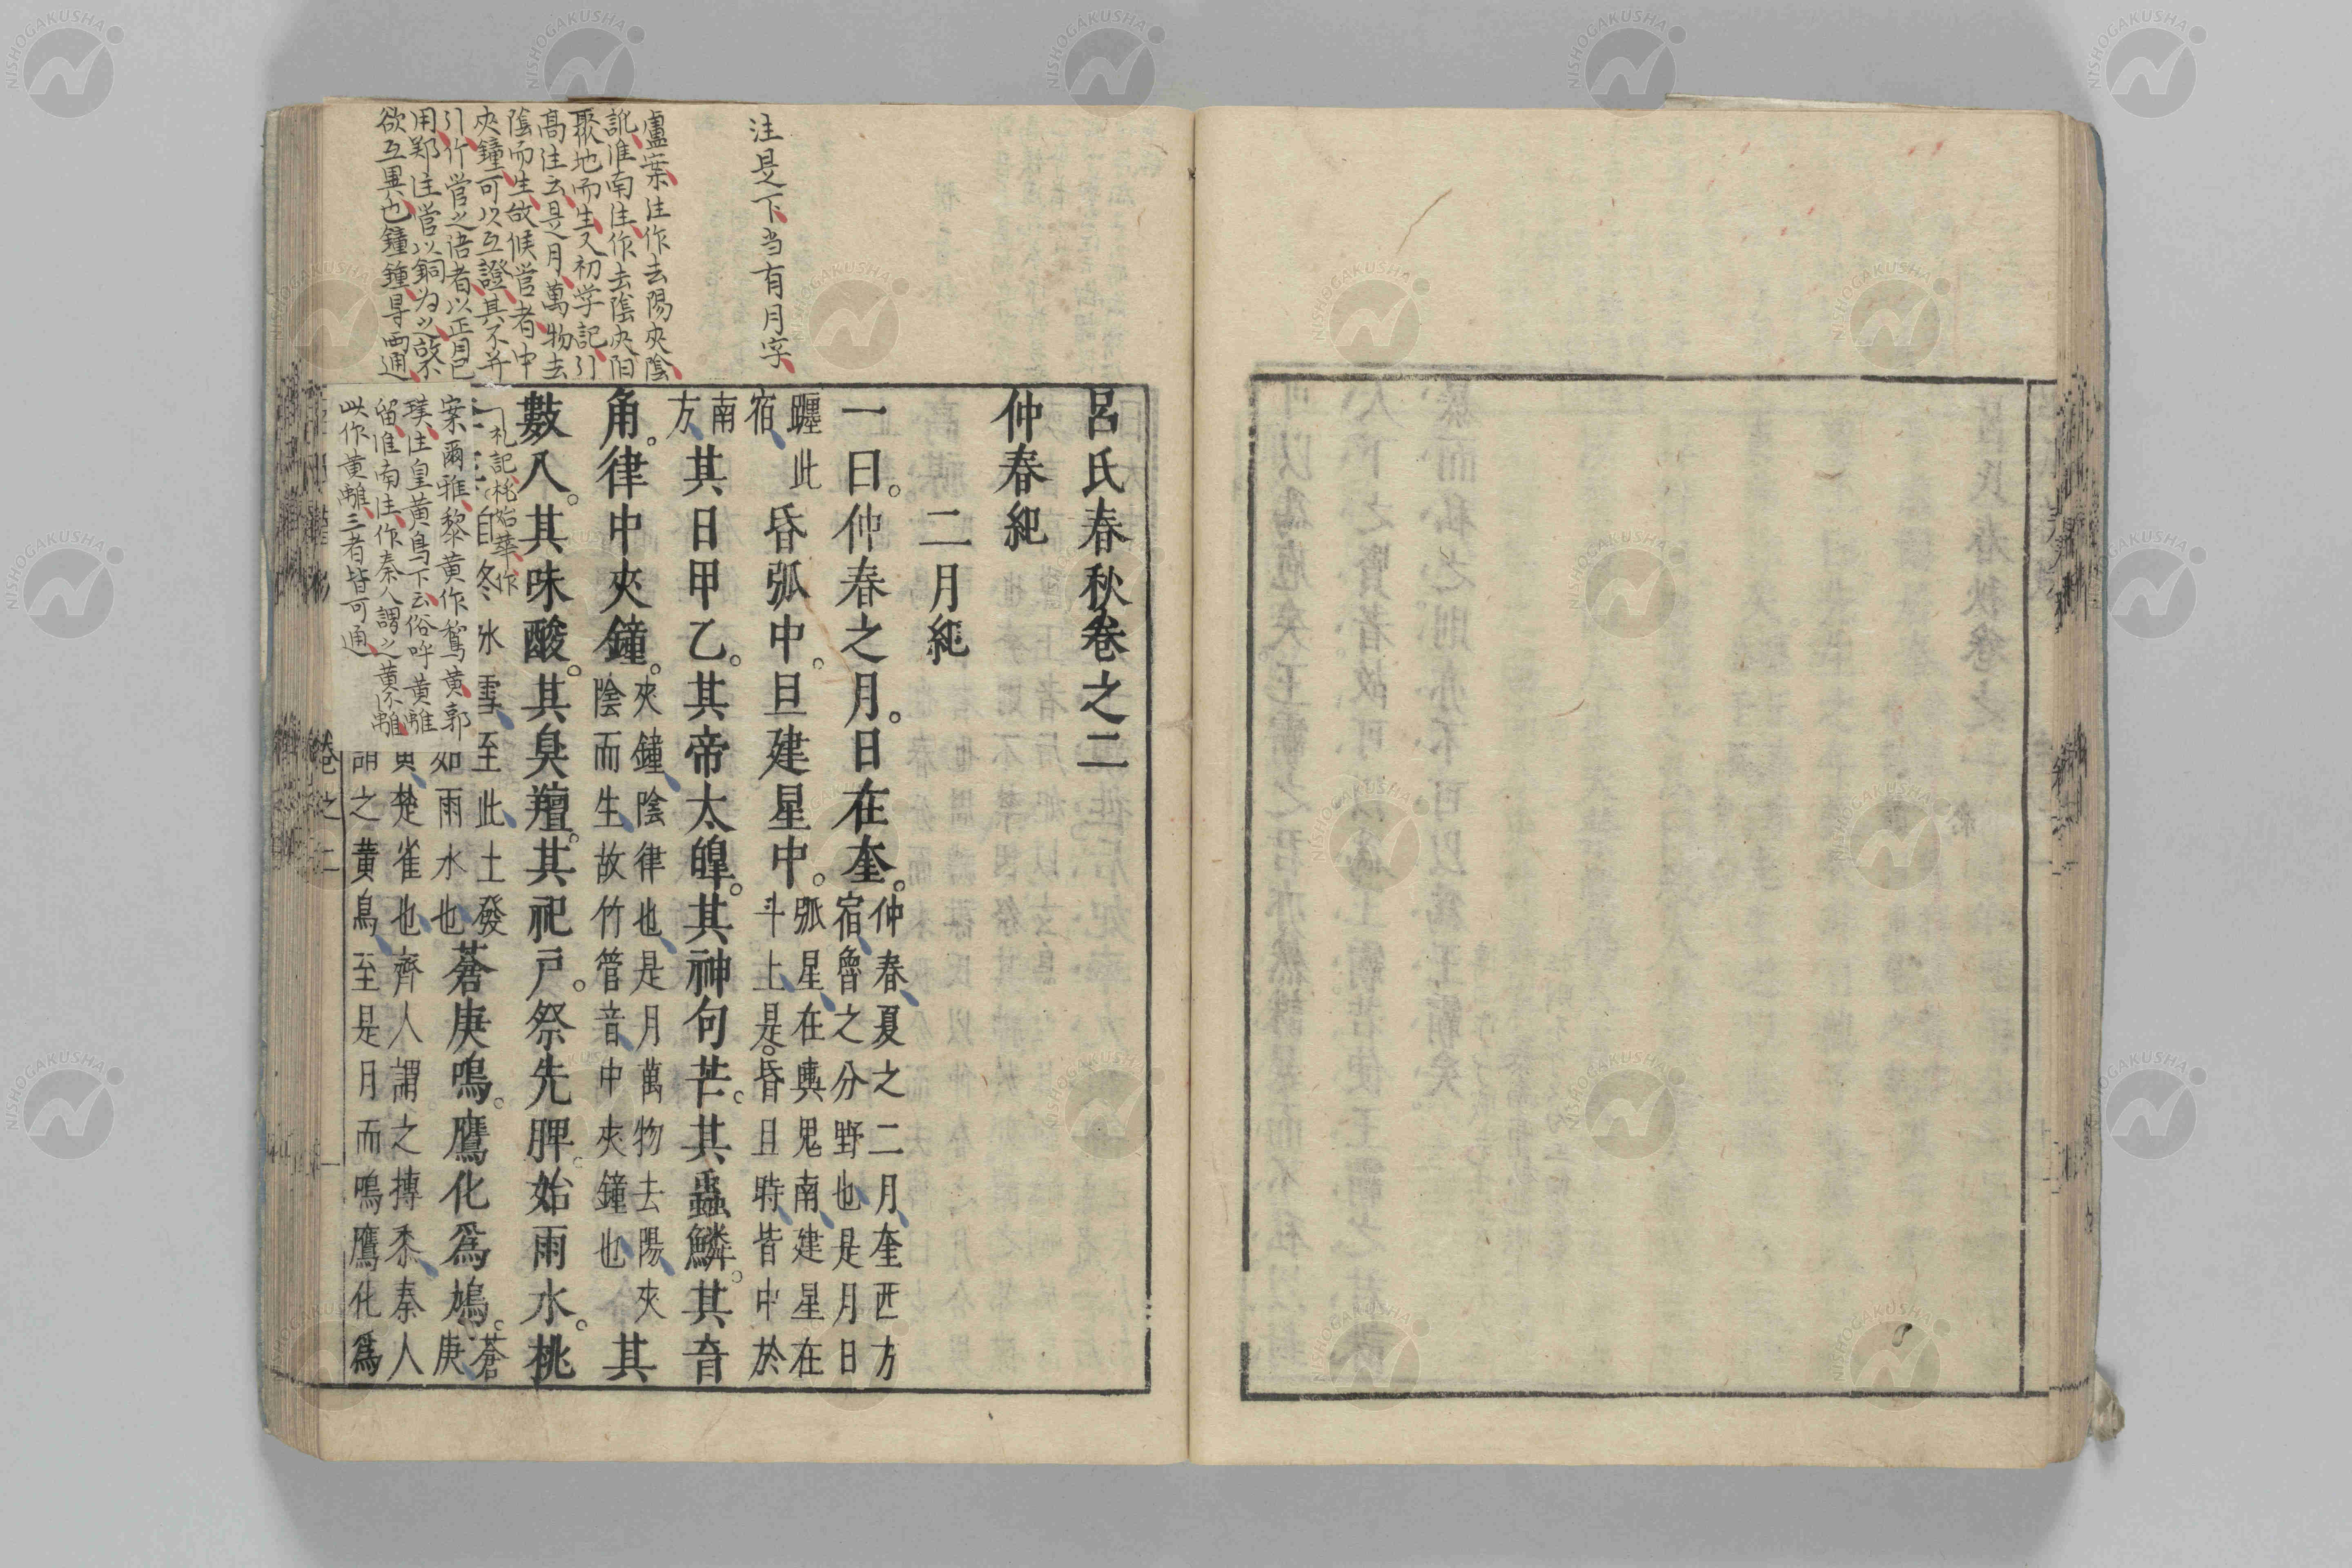 呂氏春秋卷之二
仲春紀
二月紀
一曰仲春之月。日在奎。仲春、夏之二月、奎西方
宿、魯之分野也、是月日
躔此
宿、
昏弧中。旦建星中。弧星、在輿鬼南、建星在
斗上、是。昏旦時、皆中於
南
方、
其日甲乙。其帝太皥。其神句芒。其蟲鱗。其音
角。律中夾鐘。夾鐘、陰律也、是月萬物去陽、夾
陰而生、故竹管音、中夾鐘也、
其
數八。其味酸。其臭羶。其祀戶。祭先脾。始雨水。桃
自冬冰雪、至此、土發
如雨水也、
蒼庚鳴。鷹化爲鳩。蒼
庚、
黃、楚雀也、齊人謂之摶黍、秦人
謂之黃鳥、至是月而鳴鷹化爲
卷之二
一
注是下、当有月字、
盧案、注作去陽夾陰、
訛、淮南注、作去陰夾陽
聚地而生、又初学記、引
高注云、是月、萬物去
陰而生、故候管者中
夾鐘、可以互證、其不并
引竹管之語者、以正月已
用鄭注管以銅为之、故不
欲互異也、鐘鍾㝵兩通、
礼記、桃始華、作
案爾雅、黎黄作鵹黄、郭
璞注皇黄鳥下云、俗呼黄離
留、淮南注、作秦人謂之黄流離、
此作黄離、三者皆可通、
NISHOGAKUSHA